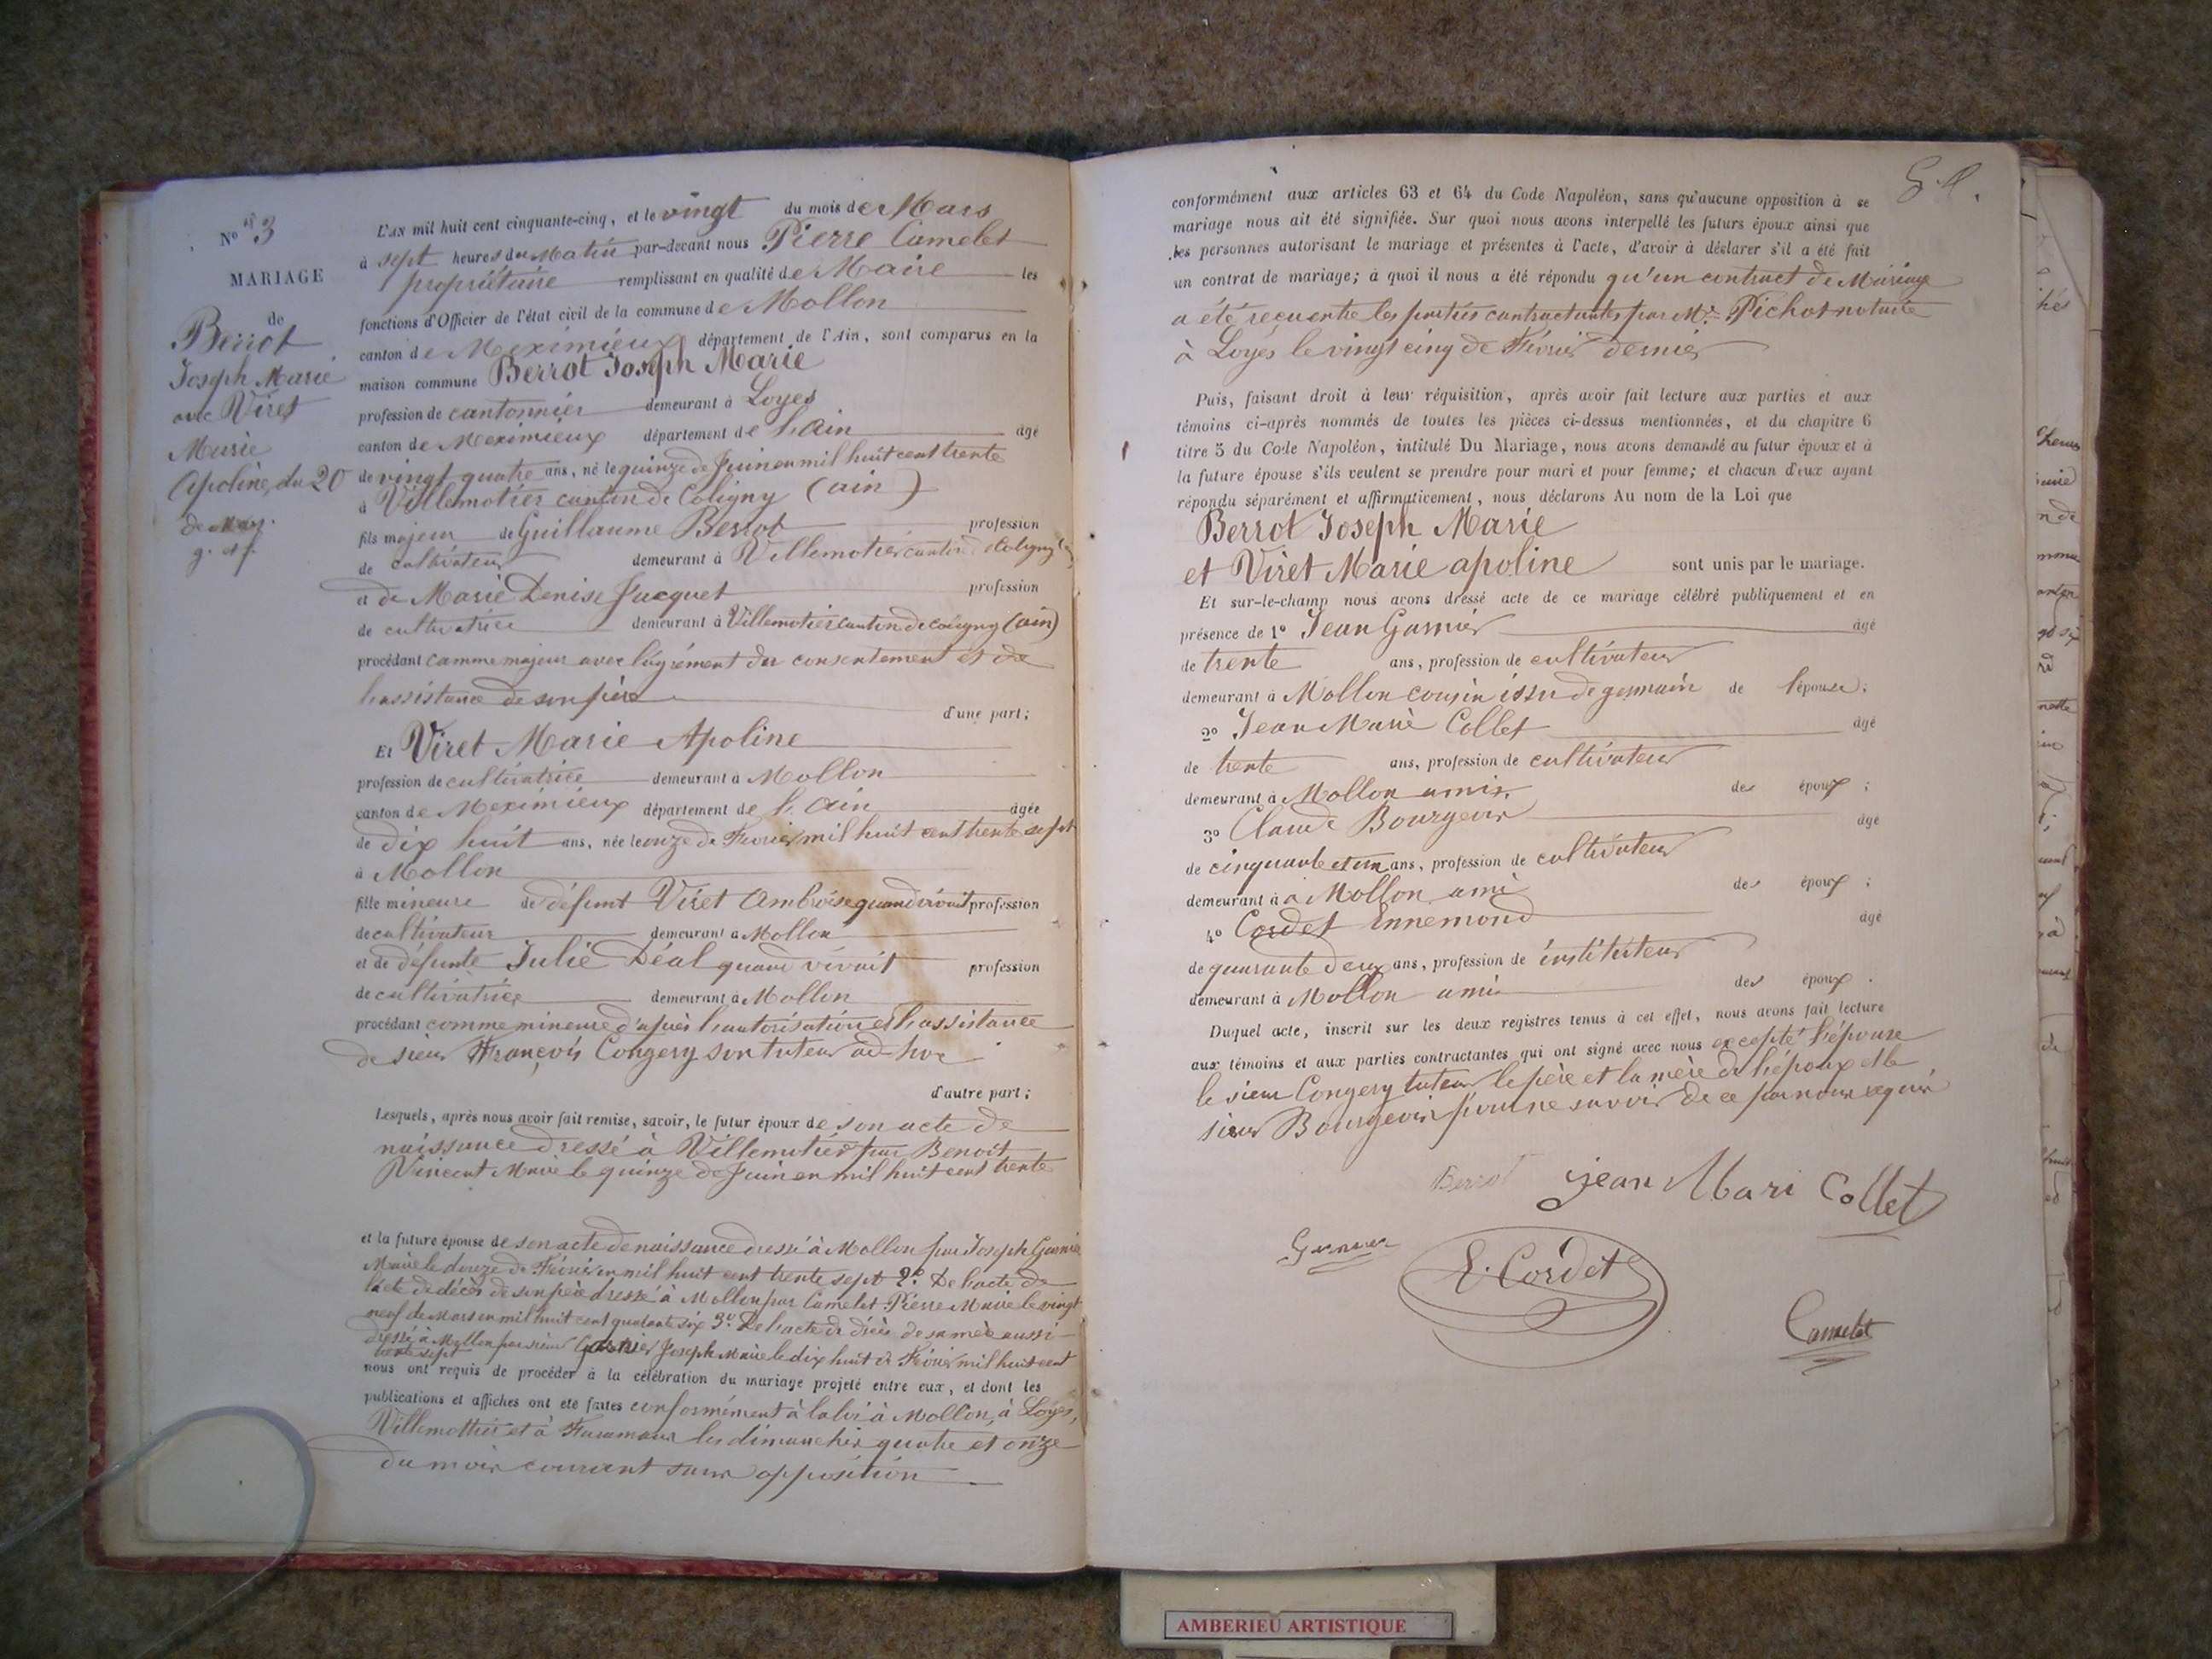 N° 3
MARIAGE
de
Berrot
Joseph Marie
avec Viret
Marie
Apoline, du 20
de Mars.
L'AN mil huit cent cinquante-cinq, et le vingt du mois de Mars
à sept heures du Matin par-devant nous Pierre Camelet
propriétaire remplissant en qualité de Maire les
fonctions d'Officier de l'état civil de la commune de Mollon
canton de Meximieux département de l'Ain, sont comparus en la
maison commune Berrot Joseph Marie
profession de cantonnier demeurant à Loyes
canton de Meximieux département de l'Ain âgé
de vingt quatre ans, né le quinze de Juin en mil huit cent trente
à Villemotier canton de Coligny (ain)
fils majeur de Guillaume Berrot profession
de cultivateur demeurant à Villemotier canton de Coligny
et de Marie Denise Jacquet profession
de cultivatrice demeurant à Villemotier canton de Coligny (ain)
procédant comme majeur avec l'agrément du consentement et de
l'assistance de son père
d'une part;
Et Viret Marie Apoline
profession de cultivatrice demeurant à Mollon
canton de Meximieux département de l'Ain âgée
de dix huit ans, née le onze de Février mil huit cent trente sept
à Mollon
fille mineure de défunt Viret Ambroise quand vivait profession
de cultivateur demeurant à Mollon
et de défunte Julie Déal quand vivait profession
de cultivatrice demeurant à Mollon
procédant comme mineure d'après l'autorisation et l'assistance
de sieur François Congery son tuteur ad-hoc
d'autre part;
Lesquels, après nous avoir fait remise, savoir, le futur époux de son acte de
naissance dressé à Villemotier par Benoit
Vincent Maire le quinze de Juin en mil huit cent trente
et la future épouse de son acte de naissance dressé à Mollon par Joseph Garnier
Maire le douze de Février en mil huit cent trente sept 2° De l'acte de
l'acte de décès de son père dressé à Mollon par Camelet Pierre Maire le vingt
neuf de Mars en mil huit cent quarante six 3° De l'acte de décès de sa mère aussi
dressé à Mollon par sieur Garnier Joseph Maire le dix huit de Février mil huit cent
trente sept
nous ont requis de procéder à la célébration du mariage projeté entre eux, et dont les
publications et affiches ont été faites conformément à la loi à Mollon, à Loyes,
Villemottier et à Faramans les dimanches quatre et onze
du mois courant sans opposition
conformément aux articles 63 et 64 du Code Napoléon, sans qu'aucune opposition à ce
mariage nous ait été signifiée. Sur quoi nous avons interpellé les futurs époux ainsi que
les personnes autorisant le mariage et présentes à l'acte, d'avoir à déclarer s'il a été fait
un contrat de mariage; à quoi il nous a été répondu qu'un contract de Mariage
a été reçu entre les parties contractantes par Mr. Pichot notaire
à Loyes le vingt cinq de Février dernier
Puis, faisant droit à leur réquisition, après avoir fait lecture aux parties et aux
témoins ci-après nommés de toutes les pièces ci-dessus mentionnées, et du chapitre 6
titre 5 du Code Napoléon, intitulé Du Mariage, nous avons demandé au futur époux et à
la future épouse s'ils veulent se prendre pour mari et pour femme; et chacun d'eux ayant
répondu séparément et affirmativement, nous déclarons Au nom de la Loi que
Berrot Joseph Marie
et Viret Marie apoline sont unis par le mariage.
Et sur-le-champ nous avons dressé acte de ce mariage célébré publiquement et en
présence de 1° Jean Garnier âgé
de trente ans, profession de cultivateur
demeurant à Mollon cousin issu de germain de l'épouse;
2° Jean Marie Collet âgé
de trente ans, profession de cultivateur
demeurant à Mollon amis des époux;
3° Claude Bourgeois âgé
de cinquante et un ans, profession de cultivateur
demeurant à a Mollon ami des époux;
4° Cordet Ennemond âgé
de quarante deux ans, profession de instituteur
demeurant à Mollon ami des époux.
Duquel acte, inscrit sur les deux registres tenus à cet effet, nous avons fait lecture
aux témoins et aux parties contractantes qui ont signé avec nous excepté l'épouse
le sieur Congery tuteur le père et la mère de l'époux et le
sieur Bourgeois pour ne savoir de ce par nous requis
Berrot Jean Mari Collet
Garnier
E. Cordet
Camelet
AMBERIEU ARTISTIQUE